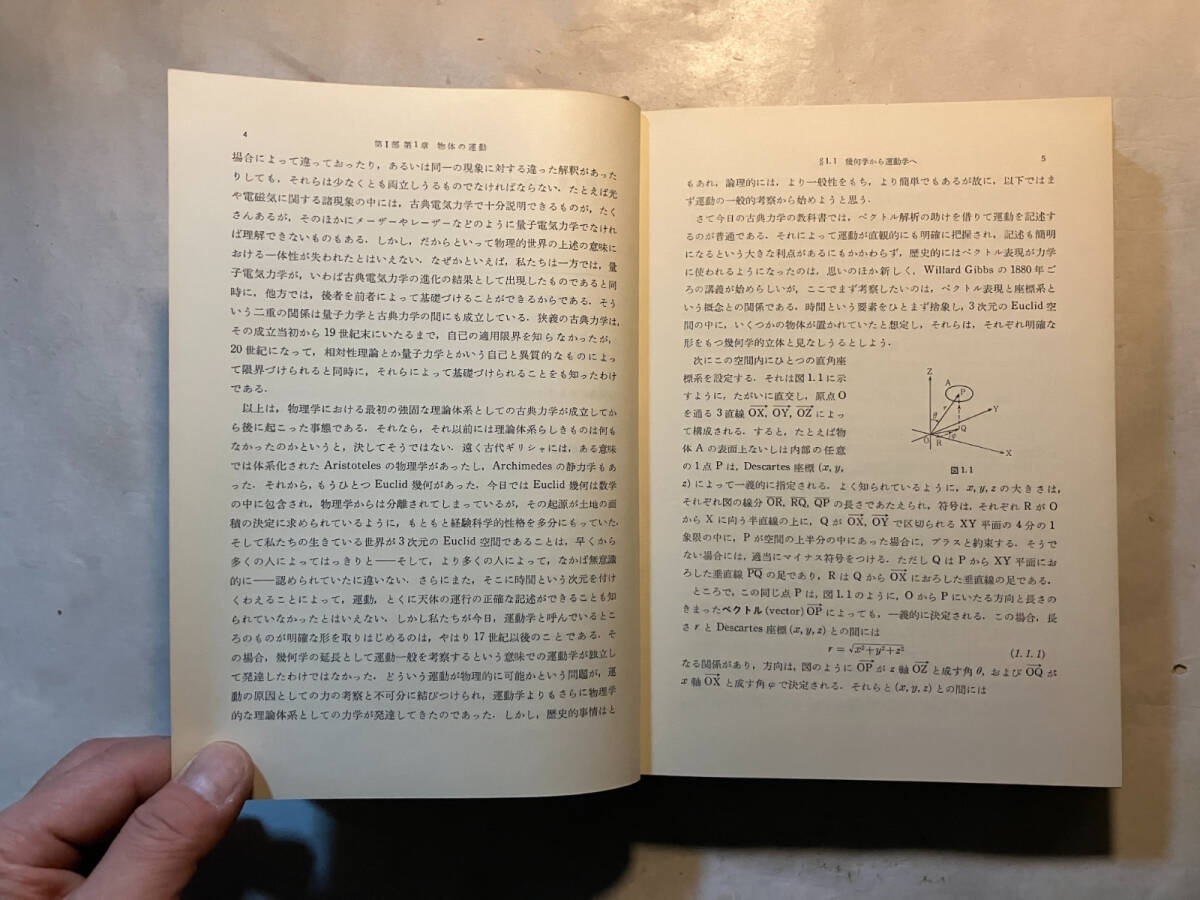 4
第Ⅰ部 第1章 物体の運動
場合によって違っておったり，あるいは同一の現象に対する違った解釈があった
りしても，それらは少なくとも両立しうるものでなければならない．たとえば光
や電磁気に関する諸現象の中には，古典電気力学で十分説明できるものが，たく
さんあるが，そのほかにメーザーやレーザーなどのように量子電気力学でなけれ
ば理解できないものもある．しかし，だからといって物理的世界の上述の意味に
おける一体性が失われたとはいえない．なぜかといえば，私たちは一方では，量
子電気力学が，いわば古典電気力学の進化の結果として出現したものであると同
時に，他方では，後者を前者によって基礎づけることができるからである．そう
いう二重の関係は量子力学と古典力学の間にも成立している．狭義の古典力学は，
その成立当初から19世紀末にいたるまで，自己の適用限界を知らなかったが，
20世紀になって，相対性理論とか量子力学とかいう自己と異質的なものによっ
て限界づけられると同時に，それらによって基礎づけられることをも知ったわけ
である．
以上は，物理学における最初の強固な理論体系としての古典力学が成立してか
ら後に起こった事態である．それなら，それ以前には理論体系らしきものは何も
なかったのかというと，決してそうではない．遠く古代ギリシャには，ある意味
では体系化されたAristotelesの物理学があったし，Archimedesの静力学もあ
った．それから，もうひとつEuclid幾何があった．今日ではEuclid幾何は数学
の中に包含され，物理学からは分離されてしまっているが，その起源が土地の面
積の決定に求められているように，もともと経験科学的性格を多分にもっていた．
そして私たちの生きている世界が3次元のEuclid空間であることは，早くから
多くの人によってはっきりと――そして，より多くの人によって，なかば無意識
的に――認められていたに違いない．さらにまた，そこに時間という次元を付け
くわえることによって，運動，とくに天体の運行の正確な記述ができることも知
られていなかったとはいえない．しかし私たちが今日，運動学と呼んでいるとこ
ろのものが明確な形を取りはじめるのは，やはり17世紀以後のことである．そ
の場合，幾何学の延長として運動一般を考察するという意味での運動学が独立し
て発達したわけではなかった．どういう運動が物理的に可能かという問題が，運
動の原因としての力の考察と不可分に結びつけられ，運動学よりもさらに物理学
的な理論体系としての力学が発達してきたのであった．しかし，歴史的事情はと
§1.1 幾何学から運動学へ
5
もあれ，論理的には，より一般性をもち，より簡単でもあるが故に，以下ではま
ず運動の一般的考察から始めようと思う．
さて今日の古典力学の教科書では，ベクトル解析の助けを借りて運動を記述す
るのが普通である．それによって運動が直観的にも明確に把握され，記述も簡明
になるという大きな利点があるにもかかわらず，歴史的にはベクトル表現が力学
に使われるようになったのは，思いのほか新しく，Willard Gibbsの1880年ご
ろの講義が始めらしいが，ここでまず考察したいのは，ベクトル表現と座標系と
いう概念との関係である．時間という要素をひとまず捨象し，3次元のEuclid空
間の中に，いくつかの物体が置かれていたと想定し，それらは，それぞれ明確な
形をもつ幾何学的立体と見なしうるとしよう．
次にこの空間内にひとつの直角座
標系を設定する．それは図1.1に示
すように，たがいに直交し，原点O
を通る3直線OX⃗, OY⃗, OZ⃗によっ
て構成される．すると，たとえば物
体Aの表面上ないしは内部の任意
の1点Pは，Descartes座標(x, y,
Z
A
P
θ
r
Y
O
φ
Q
R
X
図1.1
z)によって一義的に指定される．よく知られているように，x, y, zの大きさは，
それぞれ図の線分O̅R̅, R̅Q̅, Q̅P̅の長さであたえられ，符号は，それぞれRがO
からXに向う半直線の上に，QがOX⃗, OY⃗で区切られるXY平面の4分の1
象限の中に，Pが空間の上半分の中にあった場合に，プラスと約束する．そうで
ない場合には，適当にマイナス符号をつける．ただしQはPからXY平面にお
ろした垂直線P̅Q̅の足であり，RはQからOX⃗におろした垂直線の足である．
ところで，この同じ点Pは，図1.1のように，OからPにいたる方向と長さの
きまったベクトル(vector)OP⃗によっても，一義的に決定される．この場合，長
さrとDescartes座標(x, y, z)との間には
r = √x²+y²+z² (1.1.1)
なる関係があり，方向は，図のようにOP⃗がz軸OZ⃗と成す角θ，およびOQ⃗が
x軸OX⃗と成す角φで決定される．それらと(x, y, z)との間には